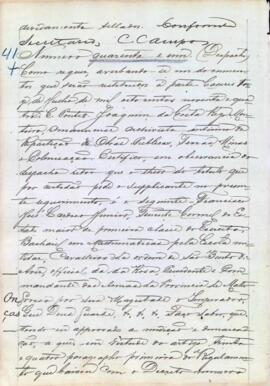 devidamente sellados. Conforme
Secretario, C. Campos
41 Numero quarenta e um (Despacho
Como requer, averbando-se nos documen
tos que serão restituidos a parte Cuiabá
de Julho de mil oito centos noventa e qua
tro. E Couto. Joaquim da Costa
Amanuense archivista interino da
Repartição de Obras Publicas, Terras, Minas
e Colonisação. Certifico, em observancia do
despacho retro que o theor do titulo que
por certidão pede o supplicante no presen
te requerimento, é o seguinte. Francisco
José Cardoso Junior, Tenente Coronel do Es
tado maior de primeira classe do Exercito,
Bacharel em Mathematicas pela Escola
militar, Cavalleiro da ordem de São Bento de
Aviz, official da da Rosa, Presidente e Com
mandante das Armas da Provincia de Matto
Grosso por sua Magestade o Imperador,
que Deus Guarde &. &. &. Faço saber que
tendo em approvado a medição e demarca
ção a que, em virtude do artigo trinta
e quatro paragrapho primeiro do Regulamen
to que baixou com o Decreto numero